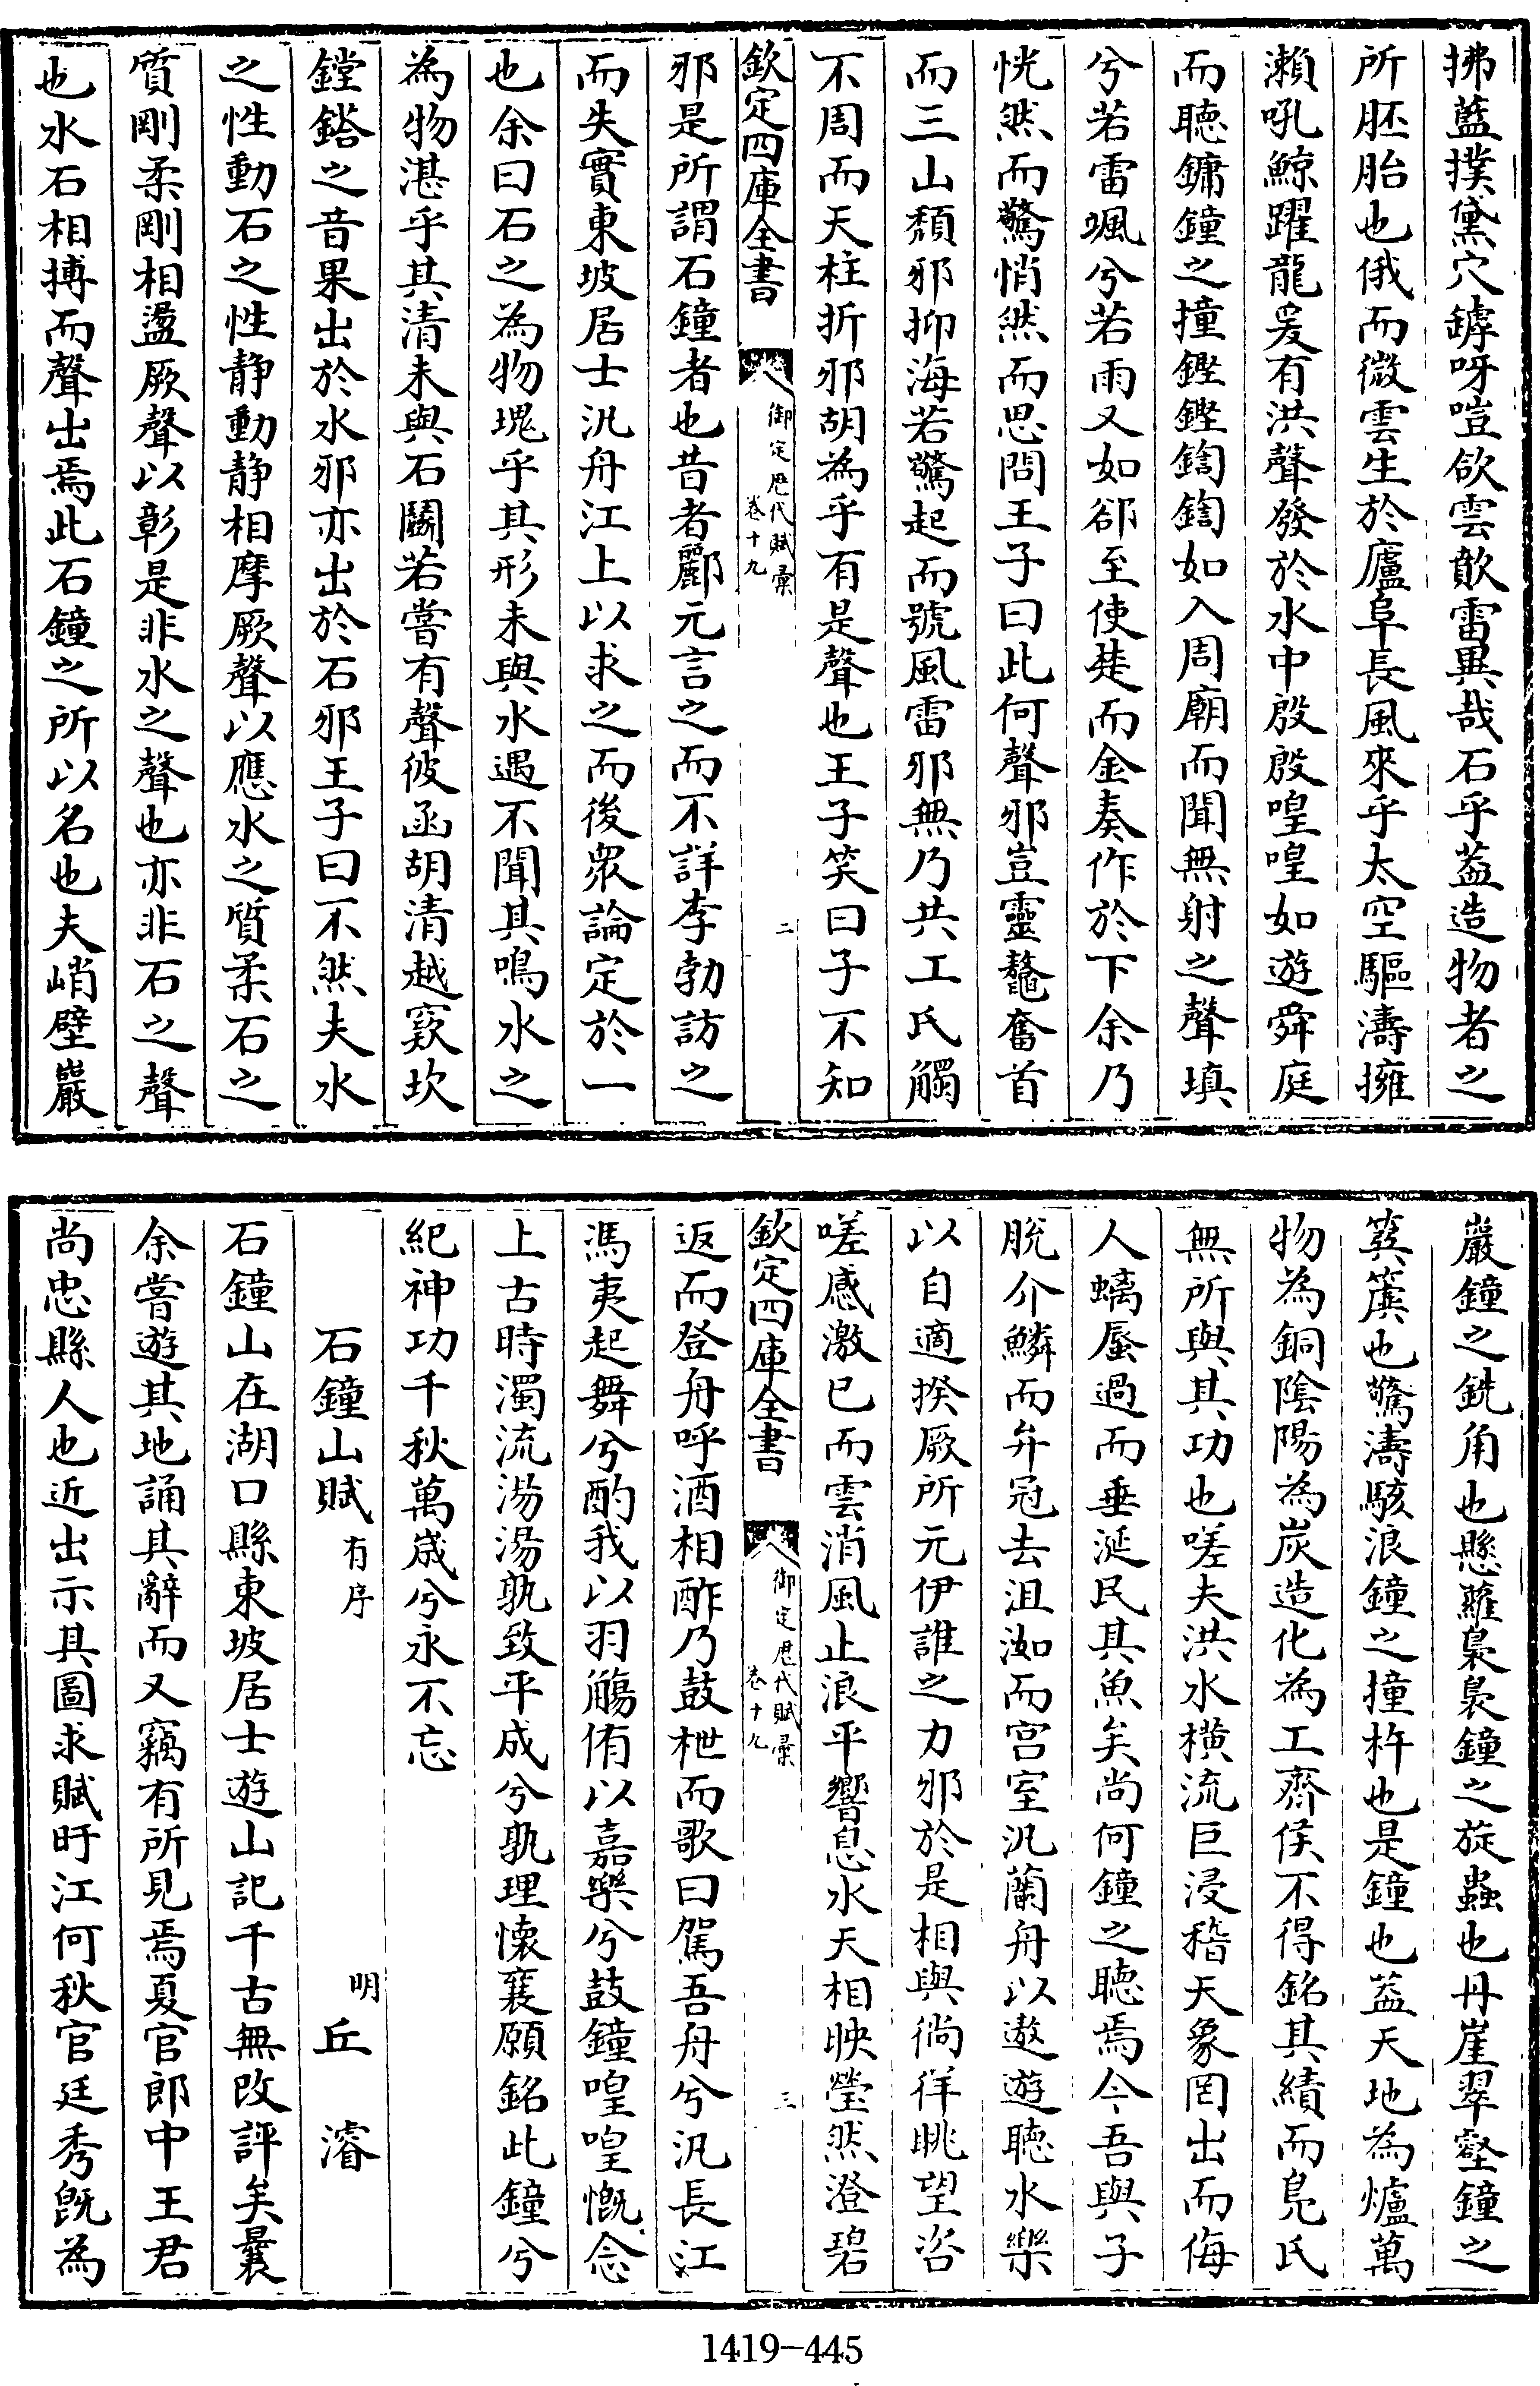 拂藍撲黛穴罅呀豈欲雲歕雷異哉石乎葢造物者之
所胚胎也俄而微雲生於廬阜長風來乎太空驅濤擁
瀨吼鯨躍龍爰有洪聲發於水中殷殷喤喤如遊舜庭
而聽鏞鐘之撞鏗鏗鍧鍧如入周廟而聞無射之聲填
兮若雷颯兮若雨又如郤至使楚而金奏作於下余乃
恍然而驚悄然而思問王子曰此何聲邪豈靈鼇奮首
而三山頹邪抑海若驚起而號風雷邪無乃共工氏觸
不周而天柱折邪胡為乎有是聲也王子笑曰子不知
欽定四庫全書
御定厯代賦彙
卷十九
二
邪是所謂石鐘者也昔者酈元言之而不詳李勃訪之
而失實東坡居士汎舟江上以求之而後衆論定於一
也余曰石之為物塊乎其形未與水遇不聞其鳴水之
為物湛乎其清未與石鬭若嘗有聲彼函胡清越窾坎
鏜鎝之音果出於水邪亦出於石邪王子曰不然夫水
之性動石之性静動静相摩厥聲以應水之質柔石之
質剛柔剛相盪厥聲以彰是非水之聲也亦非石之聲
也水石相搏而聲出焉此石鐘之所以名也夫峭壁巖
巖鐘之銑角也懸蘿裊裊鐘之旋蟲也丹崖翠壑鐘之
簨簴也驚濤駭浪鐘之撞杵也是鐘也葢天地為爐萬
物為銅陰陽為炭造化為工齊侯不得銘其績而鳧氏
無所與其功也嗟夫洪水橫流巨浸稽天象罔出而侮
人螭蜃過而垂涎民其魚矣尚何鐘之聽焉今吾與子
脫介鱗而弁冠去沮洳而宫室汎蘭舟以遨遊聽水樂
以自適揆厥所元伊誰之力邪於是相與徜徉眺望咨
嗟感激已而雲消風止浪平響息水天相映瑩然澄碧
欽定四庫全書
御定厯代賦彙
卷十九
三
返而登舟呼酒相酢乃鼓枻而歌曰駕吾舟兮汎長江
馮夷起舞兮酌我以羽觴侑以嘉樂兮鼓鐘喤喤慨念
上古時濁流湯湯孰致平成兮孰理懷襄願銘此鐘兮
紀神功千秋萬嵗兮永不忘
石鐘山賦 有序 明 丘濬
石鐘山在湖口縣東坡居士遊山記千古無改評矣曩
余嘗遊其地誦其辭而又竊有所見焉夏官郎中王君
尚忠縣人也近出示其圖求賦旴江何秋官廷秀旣為
1419-445